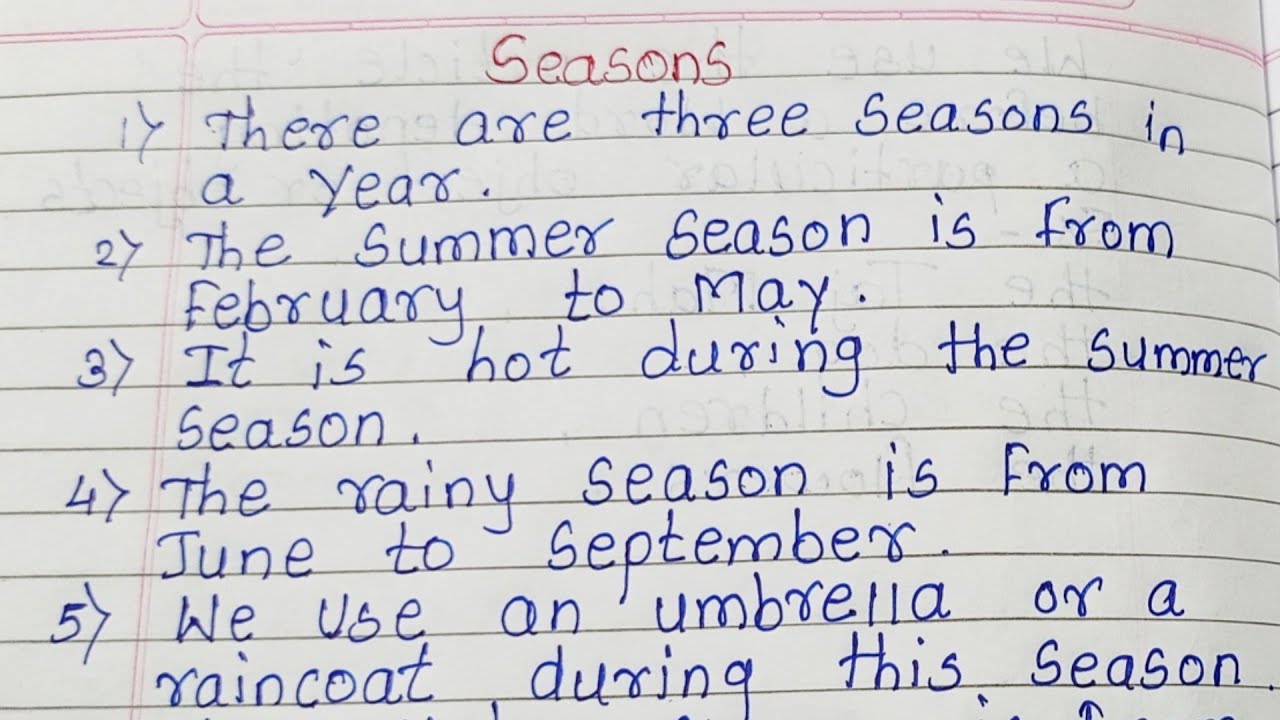 Seasons
1) There are three seasons in
a year.
2) The summer season is from
February to May.
3) It is hot during the summer
season.
4) The rainy season is from
June to September.
5) We use an umbrella or a
raincoat during this season.